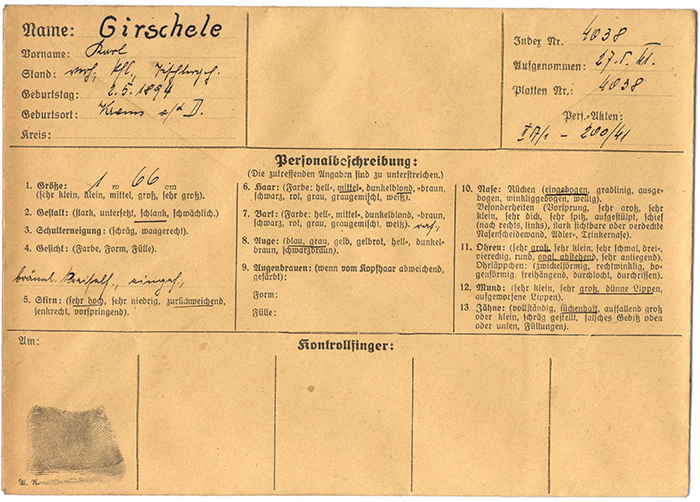 Name: Girschele
Vorname: Karl
Stand: verh., Kfl.,
Geburtstag: 2.5.1894
Geburtsort: Krems a/d D.
Kreis:
Index Nr. 4038
Aufgenommen: 27.5.41.
Platten Nr.: 4038
Pers.-Akten:
– 200/41
Personalbeschreibung:
(Die zutreffenden Angaben sind zu unterstreichen.)
1. Größe: 1 m 66 cm
(sehr klein, klein, mittel, groß, sehr groß).
2. Gestalt: (stark, untersetzt, schlank, schwächlich.)
3. Schulterneigung: (schräg, waagerecht.)
4. Gesicht: (Farbe, Form, Fülle).
bräunl.
5. Stirn: (sehr hoch, sehr niedrig, zurückweichend,
senkrecht, vorspringend).
6. Haar: (Farbe: hell-, mittel-, dunkelblond, -braun,
schwarz, rot, grau, graugemischt, weiß).
7. Bart: (Farbe: hell-, mittel-, dunkelblond, -braun,
schwarz, rot, grau, graugemischt, weiß).
8. Auge: (blau, grau, gelb, gelbrot, hell-, dunkel-
braun, schwarzbraun).
9. Augenbrauen: (wenn vom Kopfhaar abweichend,
gefärbt):
Form:
Fülle:
10. Nase: Rücken (eingebogen, gradlinig, ausge-
bogen, winkliggebogen, wellig).
Besonderheiten (Vorsprung, sehr groß, sehr
klein, sehr dick, sehr spitz, aufgestülpt, schief
(nach rechts, links), stark sichtbare oder verdeckte
Nasenscheidewand, Adler-, Trinkernase).
11. Ohren: (sehr groß, sehr klein, sehr schmal, drei-,
viereckig, rund, oval, abstehend, sehr anliegend).
Ohrläppchen: (zwickelförmig, rechtwinklig, bo-
genförmig, freihängend, durchlocht, durchriffen).
12. Mund: (sehr klein, sehr groß, dünne Lippen,
aufgeworfene Lippen).
13. Zähne: (vollständig, lückenhaft, auffallend groß
oder klein, schräg gestellt, falsches Gebiß oben
oder unten, Füllungen).
Am:
Kontrollfinger: